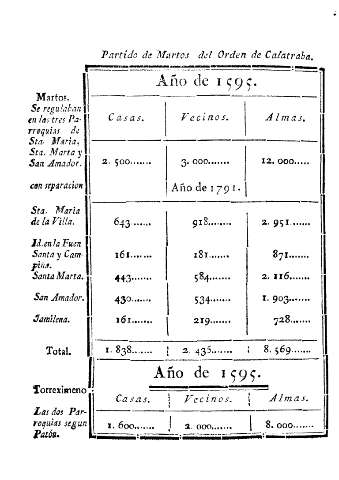 Partido de Martos del Orden de Calatraba.
Año de 1595.
Martos.
Se regulaban
en las tres Pa-
rroquias de
Sta. Maria,
Sta. Marta y
San Amador.
Casas. Vecinos. Almas.
2. 500....... 3. 000....... 12. 000.....
con separacion Año de 1791.
Sta. Maria
de la Villa. 643 ...... 918....... 2. 951.......
Id. en la Fuen
Santa y Cam
piña. 161....... 181....... 871.......
Santa Marta. 443....... 584....... 2. 116.......
San Amador. 430....... 534....... 1. 903.......
Jamilena. 161....... 219....... 728.......
Total. 1. 838....... 2. 436....... 8. 569.......
Año de 1595.
Torreximeno Casas. Vecinos. Almas.
Las dos Par-
roquias segun
Patón. 1. 600....... 2. 000....... 8. 000.......